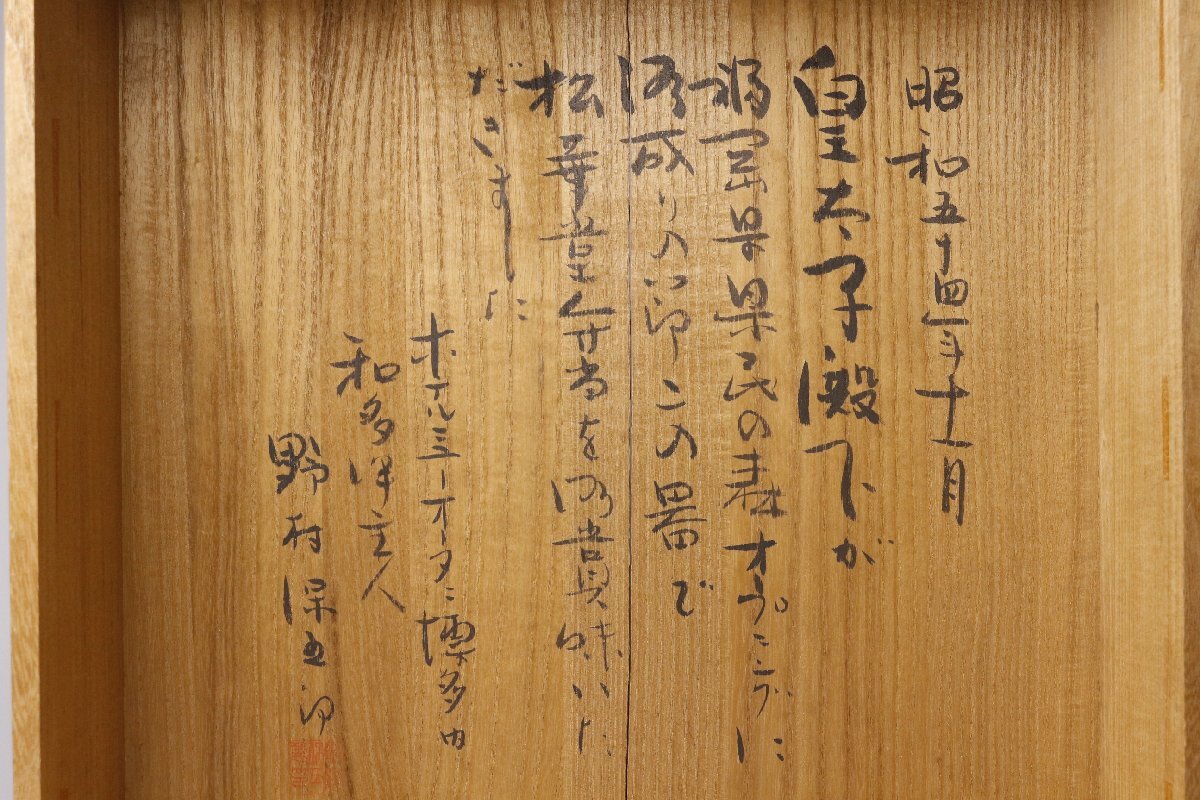 昭和五十四年十一月
皇太子殿下が
福岡県県民の森オープニングに
御成りの節この器で
松華堂弁当を御賞味いた
だきました
ホテルニューオータニ博多内
和多伴主人
野村保五郎